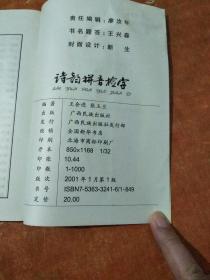 责任编辑:廖汝年
书名题签:王兴春
封面设计:新 生
诗韵拼音检字
SHI YUN PIN YIN JIAN ZI
编 著 王会进 陈玉生
出 版 广西民族出版社
发 行 广西民族出版社发行部
经 销 全国新华书店
印 刷 北海市商标印刷厂
开 本 850×1168 1/32
印 张 10.44
印 数 1-1000
版 次 2001年1月第1版
书 号 ISBN7-5363-3241-6/1·849
定 价 20.00